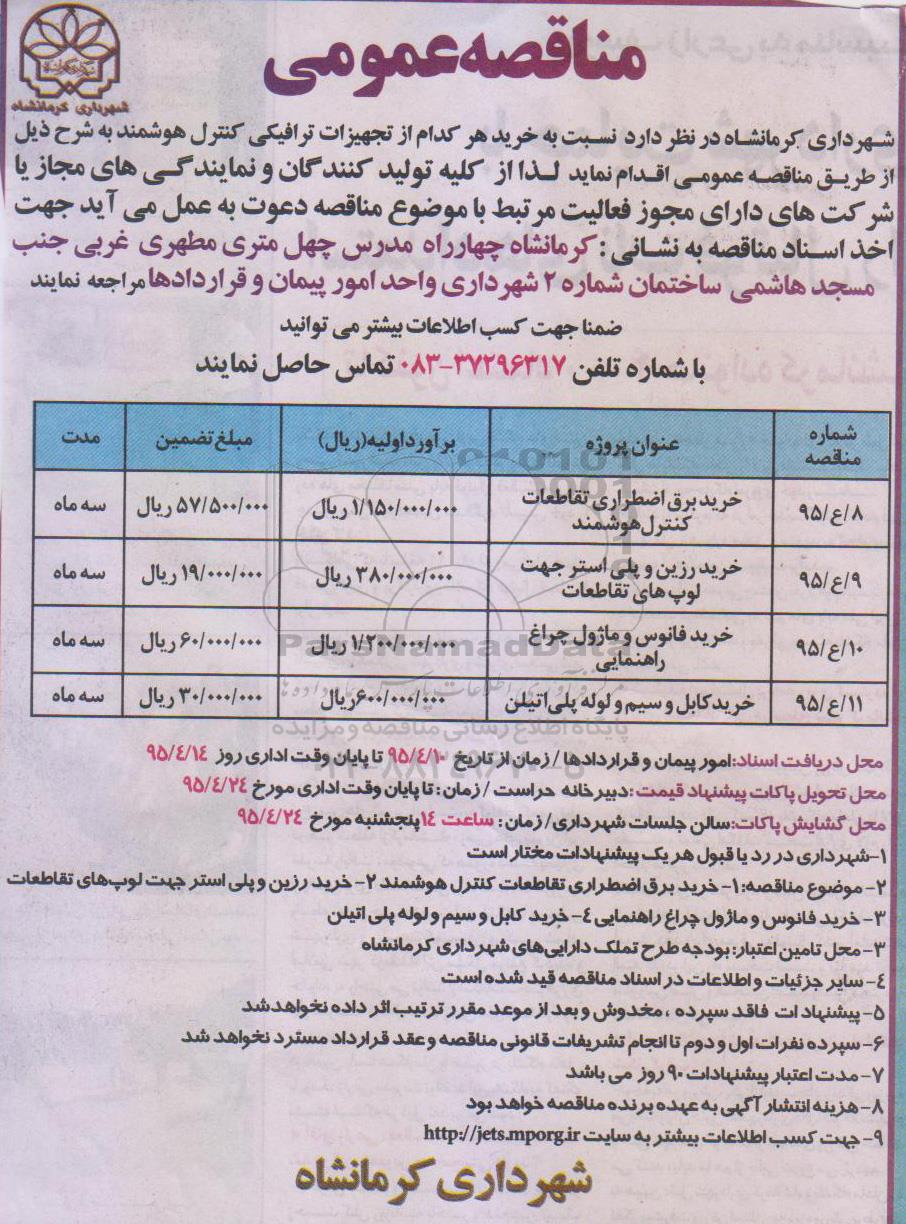 مناقصه عمومی
شهرداری کرمانشاه
شهرداری کرمانشاه در نظر دارد نسبت به خرید هر کدام از تجهیزات ترافیکی کنترل هوشمند به شرح ذیل
از طریق مناقصه عمومی اقدام نماید لذا از کلیه تولید کنندگان و نمایندگی های مجاز یا
شرکت های دارای مجوز فعالیت مرتبط با موضوع مناقصه دعوت به عمل می آید جهت
اخذ اسناد مناقصه به نشانی: کرمانشاه چهارراه مدرس چهل متری مطهری غربی جنب
مسجد هاشمی ساختمان شماره ۲ شهرداری واحد امور پیمان و قراردادها مراجعه نمایند
ضمنا جهت کسب اطلاعات بیشتر می توانید
با شماره تلفن ۳۷۲۹۶۳۱۷-۰۸۳ تماس حاصل نمایند
شماره مناقصه عنوان پروژه برآورد اولیه(ریال) مبلغ تضمین مدت
۸/ع/۹۵ خرید برق اضطراری تقاطعات کنترل هوشمند ۱/۱۵۰/۰۰۰/۰۰۰ ریال ۵۷/۵۰۰/۰۰۰ ریال سه ماه
۹/ع/۹۵ خرید رزین و پلی استر جهت لوپ های تقاطعات ۳۸۰/۰۰۰/۰۰۰ ریال ۱۹/۰۰۰/۰۰۰ ریال سه ماه
۱۰/ع/۹۵ خرید فانوس و ماژول چراغ راهنمایی ۱/۲۰۰/۰۰۰/۰۰۰ ریال ۶۰/۰۰۰/۰۰۰ ریال سه ماه
۱۱/ع/۹۵ خرید کابل و سیم و لوله پلی اتیلن ۶۰۰/۰۰۰/۰۰۰ ریال ۳۰/۰۰۰/۰۰۰ ریال سه ماه
ParsNamadData
پایگاه اطلاع رسانی مناقصه و مزایده
محل دریافت اسناد: امور پیمان و قراردادها / زمان از تاریخ ۹۵/٤/۱۰ تا پایان وقت اداری روز ۹۵/٤/۱٤
محل تحویل پاکات پیشنهاد قیمت: دبیرخانه حراست / زمان: تا پایان وقت اداری مورخ ۹۵/٤/۲٤
محل گشایش پاکات: سالن جلسات شهرداری/ زمان: ساعت ۱٤ پنجشنبه مورخ ۹۵/٤/۲٤
۱-شهرداری در رد یا قبول هر یک پیشنهادات مختار است
۲- موضوع مناقصه: ۱- خرید برق اضطراری تقاطعات کنترل هوشمند ۲- خرید رزین و پلی استر جهت لوپ های تقاطعات
۳- خرید فانوس و ماژول چراغ راهنمایی ٤- خرید کابل و سیم و لوله پلی اتیلن
۳- محل تامین اعتبار: بودجه طرح تملک دارایی های شهرداری کرمانشاه
٤- سایر جزئیات و اطلاعات در اسناد مناقصه قید شده است
۵- پیشنهاد ات فاقد سپرده ، مخدوش و بعد از موعد مقرر ترتیب اثر داده نخواهد شد
۶- سپرده نفرات اول و دوم تا انجام تشریفات قانونی مناقصه و عقد قرارداد مسترد نخواهد شد
۷- مدت اعتبار پیشنهادات ۹۰ روز می باشد
۸- هزینه انتشار آگهی به عهده برنده مناقصه خواهد بود
۹- جهت کسب اطلاعات بیشتر به سایت http://jets.mporg.ir
شهرداری کرمانشاه